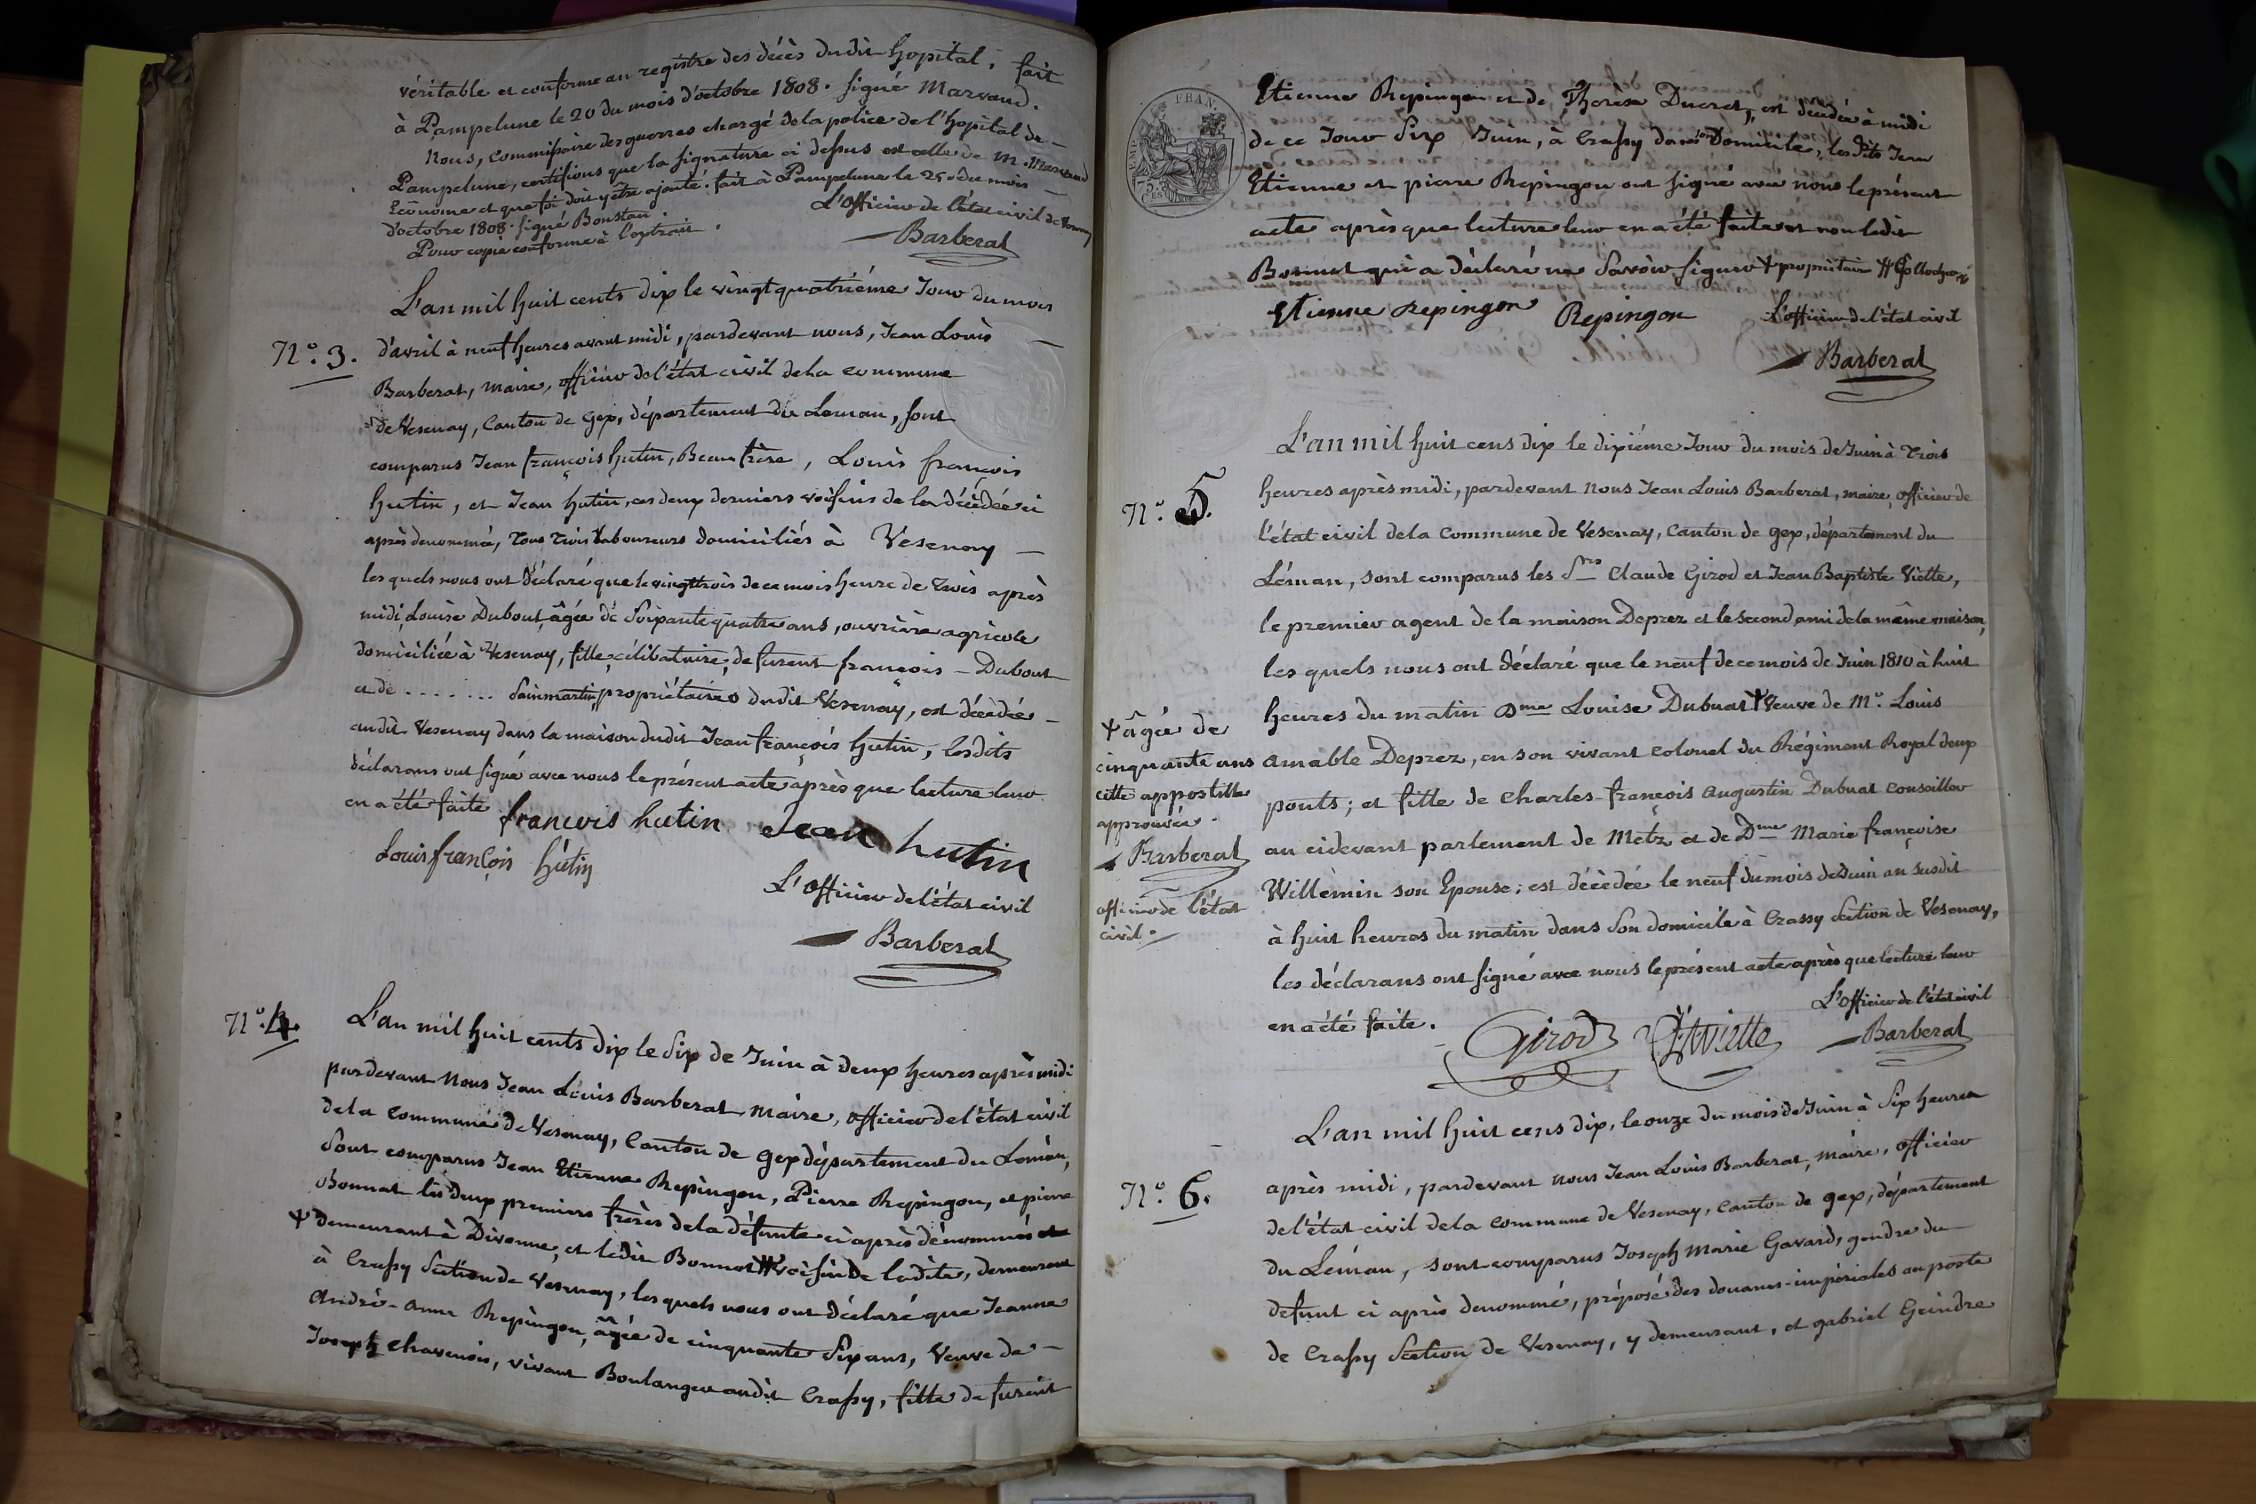 véritable et conforme au registre des décès dudit hopital, fait
à Pampelune le 20 du mois d'octobre 1808. signé Marvaud.
Nous, commissaire des guerres chargé de la police de l'hopital de
Pampelune, certifions que la signature ci dessus est celle de M. Marvaud
Econome et que foi doit y être ajouté. fait à Pampelune le 25 du mois
d'octobre 1808. signé Boustan.
Pour copie conforme à l'extrait.
L'officier de l'état civil de
Barberat
L'an mil huit cents dix le vingt quatriéme Jour du mois
N°. 3.
d'avril à neuf heures avant midi, pardevant nous, Jean Louis
Barberat, maire, officier de l'état civil de la commune
de Vesenay, Canton de gex, département du Leman, sont
comparus Jean françois hutin, Beau frère, Louis françois
hutin, et Jean hutin, ces deux derniers voisins de la décédée ci
après denommée, tous trois laboureurs domiciliés à Vesenay
les quels nous ont déclaré que le vingttrois de ce mois heure de trois après
midi, Louise Dubout, âgée de soixante quatre ans, ouvrière agricole
domiciliée à Vesenay, fille célibataire, de furent françois Dubout
et de ....... Sainmartin, propriétaires dudit Vesenay, est décédée
audit Vesenay dans la maison dudit Jean françois hutin, lesdits
déclarans ont signé avec nous le présent acte après que lecture leur
en a été faite françois hutin Jean hutin
Louis françois hutin
L'officier de l'état civil
Barberat
N°. 4.
L'an mil huit cents dix le six de Juin à deux heures après midi
pardevant Nous Jean Louis Barberat maire, officier de l'état civil
de la commune de Vesenay, Canton de gex département du Léman,
sont comparus Jean Etienne Repingon, Pierre Repingon, et pierre
Bonnet les deux premiers frères de la défunte ci après dénommée
+ demeurant à Divonne, et ledit Bonnet # voisin de ladite, demeurant
à Crassy Section de Vesenay, les quels nous ont déclaré que Jeanne
André-anne Repingon, âgée de cinquante six ans, Veuve de
Joseph Chavenois, vivant Boulanger audit Crassy, fille de furent
Etienne Repingon et de Therese Ducret, est décédée à midi
de ce Jour Six Juin, à Crassy dans son Domicile, lesdits Jean
Etienne et pierre Repingon ont signé avec nous le présent
acte après que lecture leur en a été faite et non ledit
Bonnet qui a déclaré ne savoir signer + propriétaire #
Etienne repingon Repingon L'officier de l'état civil
Barberat
L'an mil huit cens dix le dixiéme Jour du mois de Juin à trois
N°. 5.
heures après midi, pardevant Nous Jean Louis Barberat, maire, officier de
l'état civil de la Commune de Vesenay, Canton de gex, département du
Léman, sont comparus les Srs Claude Girod et Jean Baptiste Viette,
le premier agent de la maison Deprez et le second ami de la même maison,
les quels nous ont déclaré que le neuf de ce mois de Juin 1810 à huit
heures du matin Dme Louise Dubuat + Veuve de Mr. Louis
amable Deprez, en son vivant colonel du Régiment Royal deux
ponts; et fille de Charles-françois Augustin Dubuat conseiller
au cidevant parlement de Metz et de Dme Marie françoise
Willemin son Epouse; est décédée le neuf du mois de Juin an susdit
à huit heures du matin dans son domicile à Crassy Section de Vesenay,
les déclarans ont signé avec nous le présent acte après que lecture leur
en a été faite.
+ âgée de
cinquante ans
cette appostille
approuvée.
Barberat
officier de l'état
civil.
L'officier de l'état civil
Girod Viette Barberat
L'an mil huit cens dix, le onze du mois de Juin à six heures
N°. 6.
après midi, pardevant nous Jean Louis Barberat, maire, officier
de l'état civil de la commune de Vesenay, canton de gex, département
du Léman, sont comparus Joseph Marie Gavard, gendre du
défunt ci après denommé, préposé des douanes impériales au poste
de Crassy Section de Vesenay, y demeurant, et gabriel Geindre